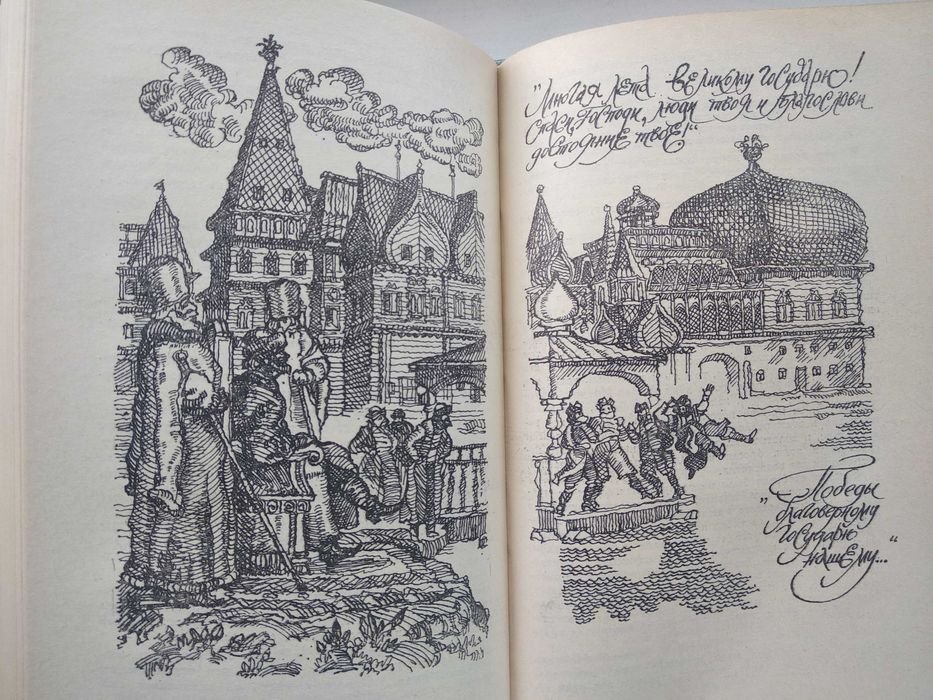 „Многая лета великому государю!
Спаси, Господи, люди твоя и благослови
достояние твое!“
„Победы
благоверному
Государю
нашему...“